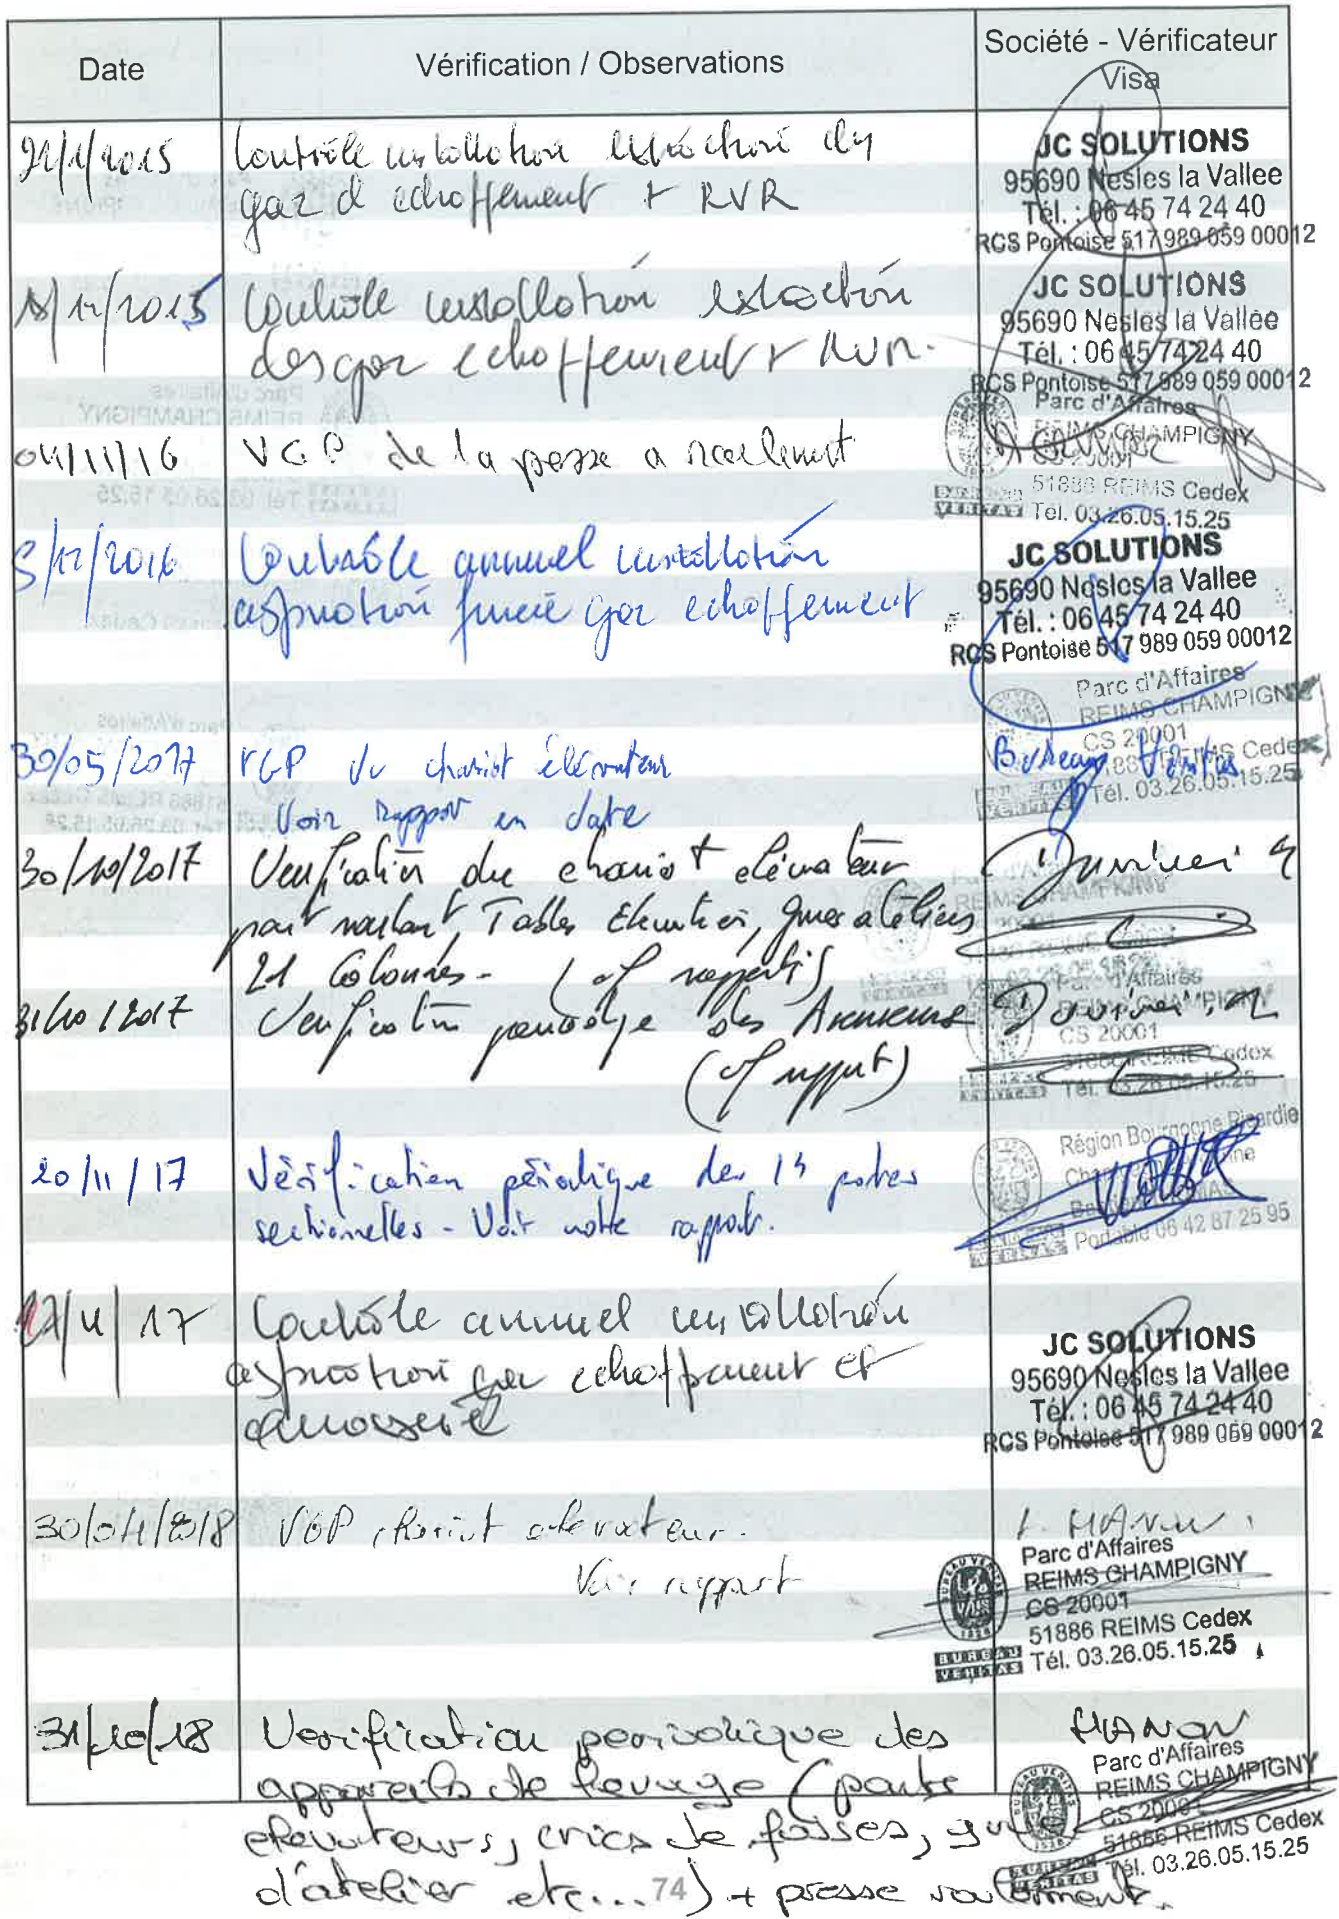 Date
Vérification / Observations
Société - Vérificateur
Visa
21/1/2015
Contrôle installation extraction du
gaz d echoffement + RVR
JC SOLUTIONS
95690 Nesles la Vallee
Tél. : 06 45 74 24 40
RCS Pontoise 517 989 059 00012
/12/2015
Contrôle installation extraction
des gaz echoffement + RVR.
JC SOLUTIONS
95690 Nesles la Vallée
Tél. : 06 45 74 24 40
RCS Pontoise 517 989 059 00012
04/11/16
VGP de la presse a roulement
Parc d'Affaires
REIMS CHAMPIGNY
CS 20001
51886 REIMS Cedex
BUREAU VERITAS
Tél. 03.26.05.15.25
5/12/2016
Contrôle annuel installation
aspiration fumée gaz echoffement
JC SOLUTIONS
95690 Nesles la Vallee
Tél. : 06 45 74 24 40
RCS Pontoise 517 989 059 00012
30/05/2017
VGP du chariot élévateur
Voir rapport en date
Bureau Véritas
Parc d'Affaires
REIMS CHAMPIGNY
CS 20001
51886 REIMS Cedex
Tél. 03.26.05.15.25
30/10/2017
Verification du chariot elévateur
pont roulant, Tables Elevatrices, grues ateliers
21 Colonnes - (cf rapports)
31/10/2017
Verification periodique des Ascenseurs
(cf rapport)
Parc d'Affaires
REIMS CHAMPIGNY
CS 20001
51886 REIMS Cedex
Tél. 03.26.05.15.25
20/11/17
Vérification périodique des 14 portes
sectionnelles - Voir notre rapport.
Région Bourgogne Picardie
Portable 06 42 87 25 95
/11/17
Contrôle annuel installation
aspiration gaz echoffement et
JC SOLUTIONS
95690 Nesles la Vallee
Tél. : 06 45 74 24 40
RCS Pontoise 517 989 059 00012
30/04/2018
VGP chariot elevateur.
Voir rapport
HANON
Parc d'Affaires
REIMS CHAMPIGNY
CS 20001
51886 REIMS Cedex
BUREAU VERITAS
Tél. 03.26.05.15.25
31/10/18
Verification periodique des
appareils de levage (ponts
elevateurs, crics de fosses, grue
d'atelier etc...) + presse roulement.
HANON
Parc d'Affaires
REIMS CHAMPIGNY
CS 20001
51886 REIMS Cedex
BUREAU VERITAS
Tél. 03.26.05.15.25
74